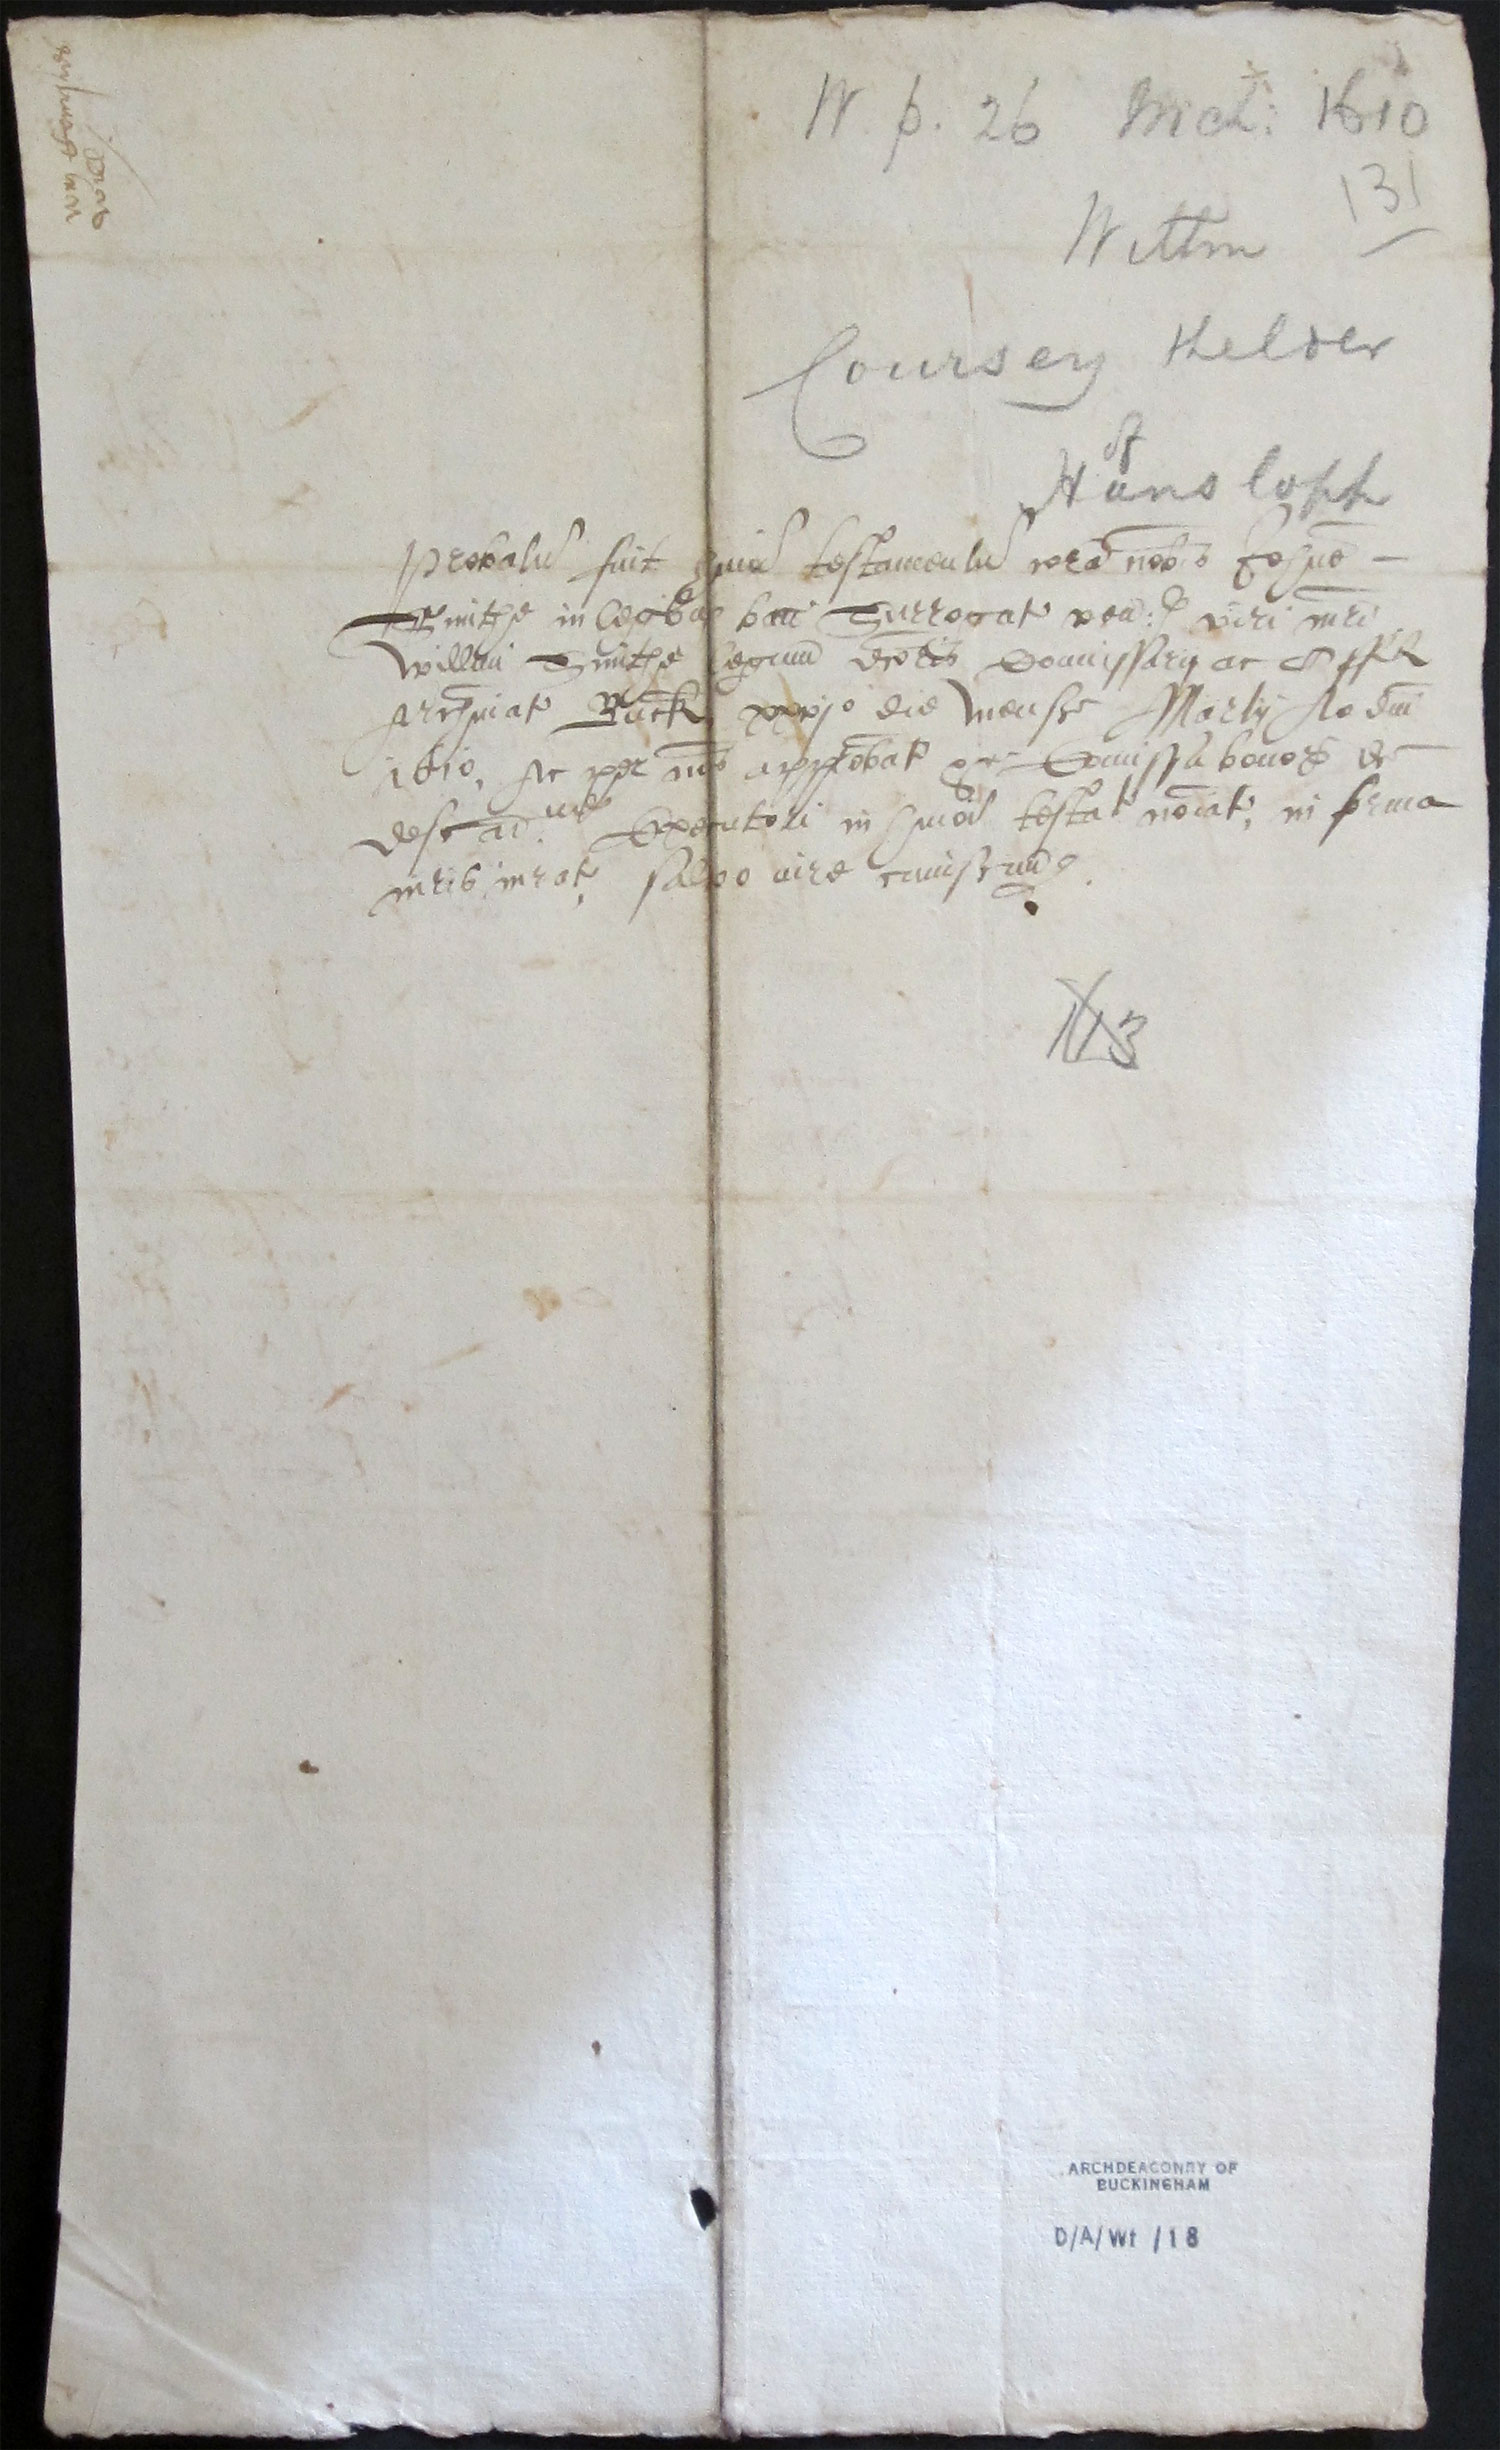 W. p. 26 Mich: 1610
131
Willm
Coursey Kelder
of
Hanslopp
Probatu fuit hmoi testamentu cora nobis Josua
Smithe in legibus bacc Surrogat ven: viri mri
Willmi Smithe legum doctris Comissarij ac Offilis
Archinat Buck xxvjo die mensis Martij Ao dni
1610, Ac per nos approbat Comissa bonor &c
def executori in hmoi testat noiat, in forma
iuris iurat, salvo iure cuiuscunq.
113
ARCHDEACONRY OF
BUCKINGHAM
D/A/Wt /18